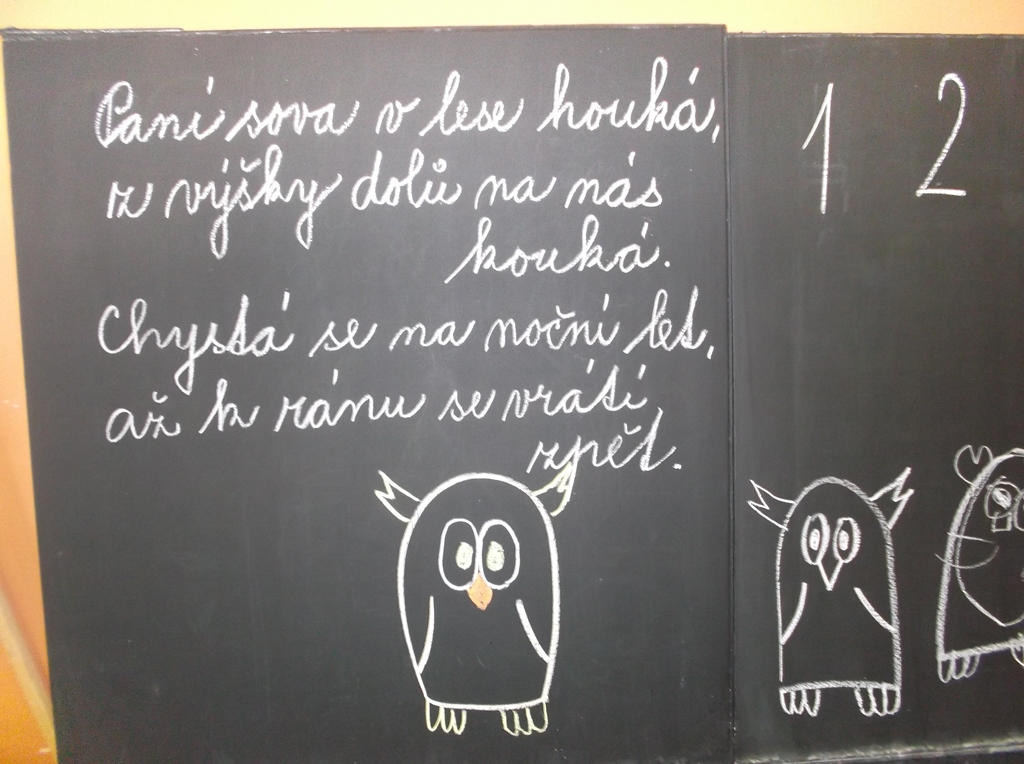 Paní sova v lese houká,
z výšky dolů na nás
kouká.
Chystá se na noční let,
až k ránu se vrátí
zpět.
1 2